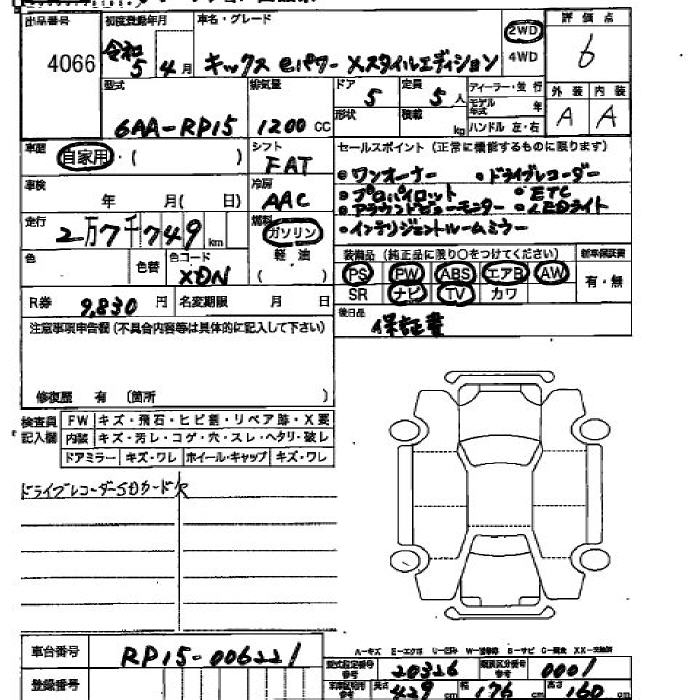 出品番号 初度登録年月 車名・グレード 評価点
4066 令和5年4月 キックス e.パワー Xスタイルエディション 2WD 4WD 6
型式 排気量 ドア 5 定員 5人 ディーラー・並行 外装 内装
6AA-RP15 1200cc 形状 積載 kg モデル年式 年 A A
ハンドル 左・右
車歴 自家用・( ) シフト FAT セールスポイント (正常に機能するものに限ります)
・ワンオーナー ・ドライブレコーダー
車検 年 月(日) 冷房 AAC ・プロパイロット ・ETC
・アラウンドビューモニター ・LEDライト
走行 2万7千749km 燃料 ガソリン ・インテリジェントルームミラー
軽油
色 色替 色コード XDN ( ) 装備品 (純正品に限り○をつけてください) 新車保証書
PS PW ABS エアB AW 有・無
R券 9,830円 名変期限 月 日 SR ナビ TV カワ
注意事項申告欄 (不具合内容等は具体的に記入して下さい) 後日品 保証書
修復歴 有 (箇所 )
検査員記入欄 FW キズ・飛石・ヒビ割・リペア跡・X要
内装 キズ・汚レ・コゲ・穴・スレ・ヘタリ・破レ
ドアミラー キズ・ワレ ホイール・キャップ キズ・ワレ
ドライブレコーダーSDカード欠
車台番号 RP15-006221
型式指定番号 20326 類別区分番号 0001
登録番号 長さ 429 cm 幅 176 cm 高さ 160 cm